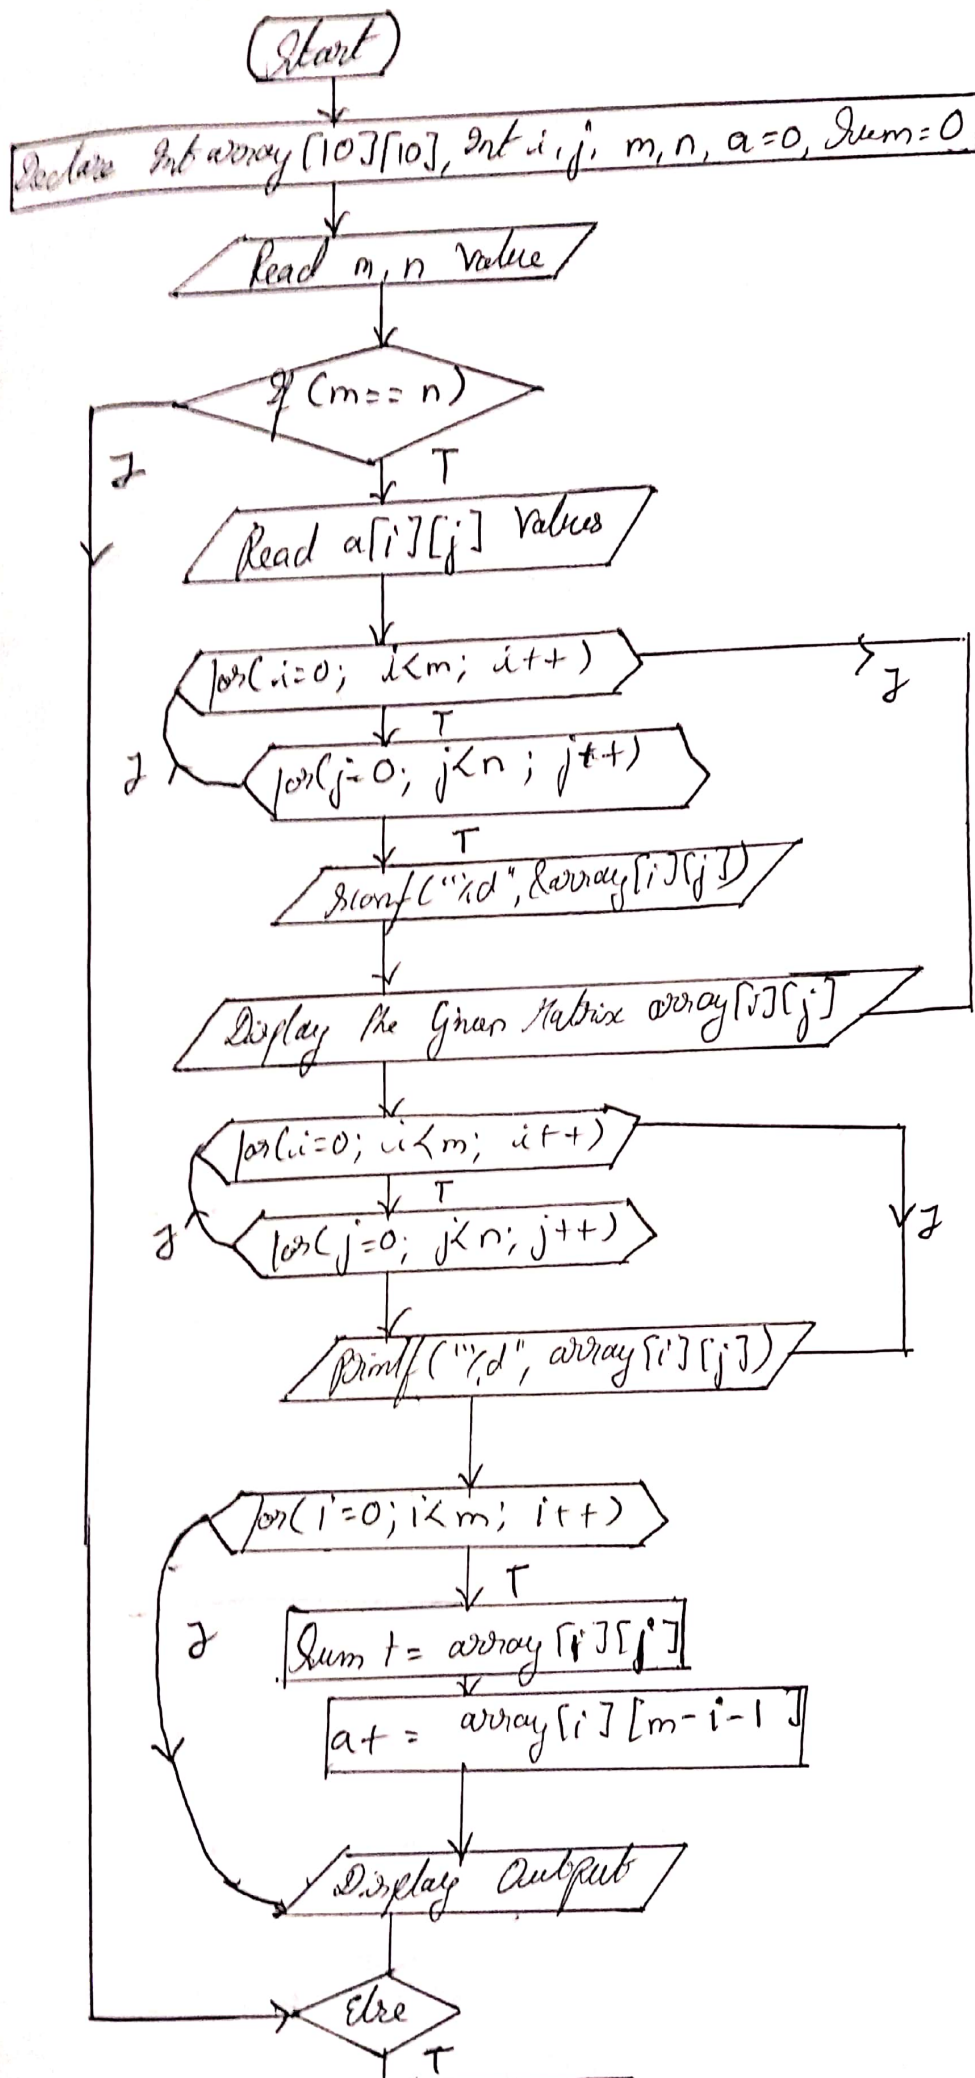 Start
Declare Int array[10][10], Int i, j, m, n, a=0, Sum=0
Read m, n Value
If (m==n)
F
T
Read a[i][j] Values
for(i=0; i<m; i++)
F
T
for(j=0; j<n; j++)
F
T
scanf("%d", &array[i][j])
Display the Given Matrix array[i][j]
for(i=0; i<m; i++)
T
F
F
for(j=0; j<n; j++)
printf("%d", array[i][j])
for(i=0; i<m; i++)
T
F
Sum += array[i][j]
a+= array[i][m-i-1]
Display Output
Else
T